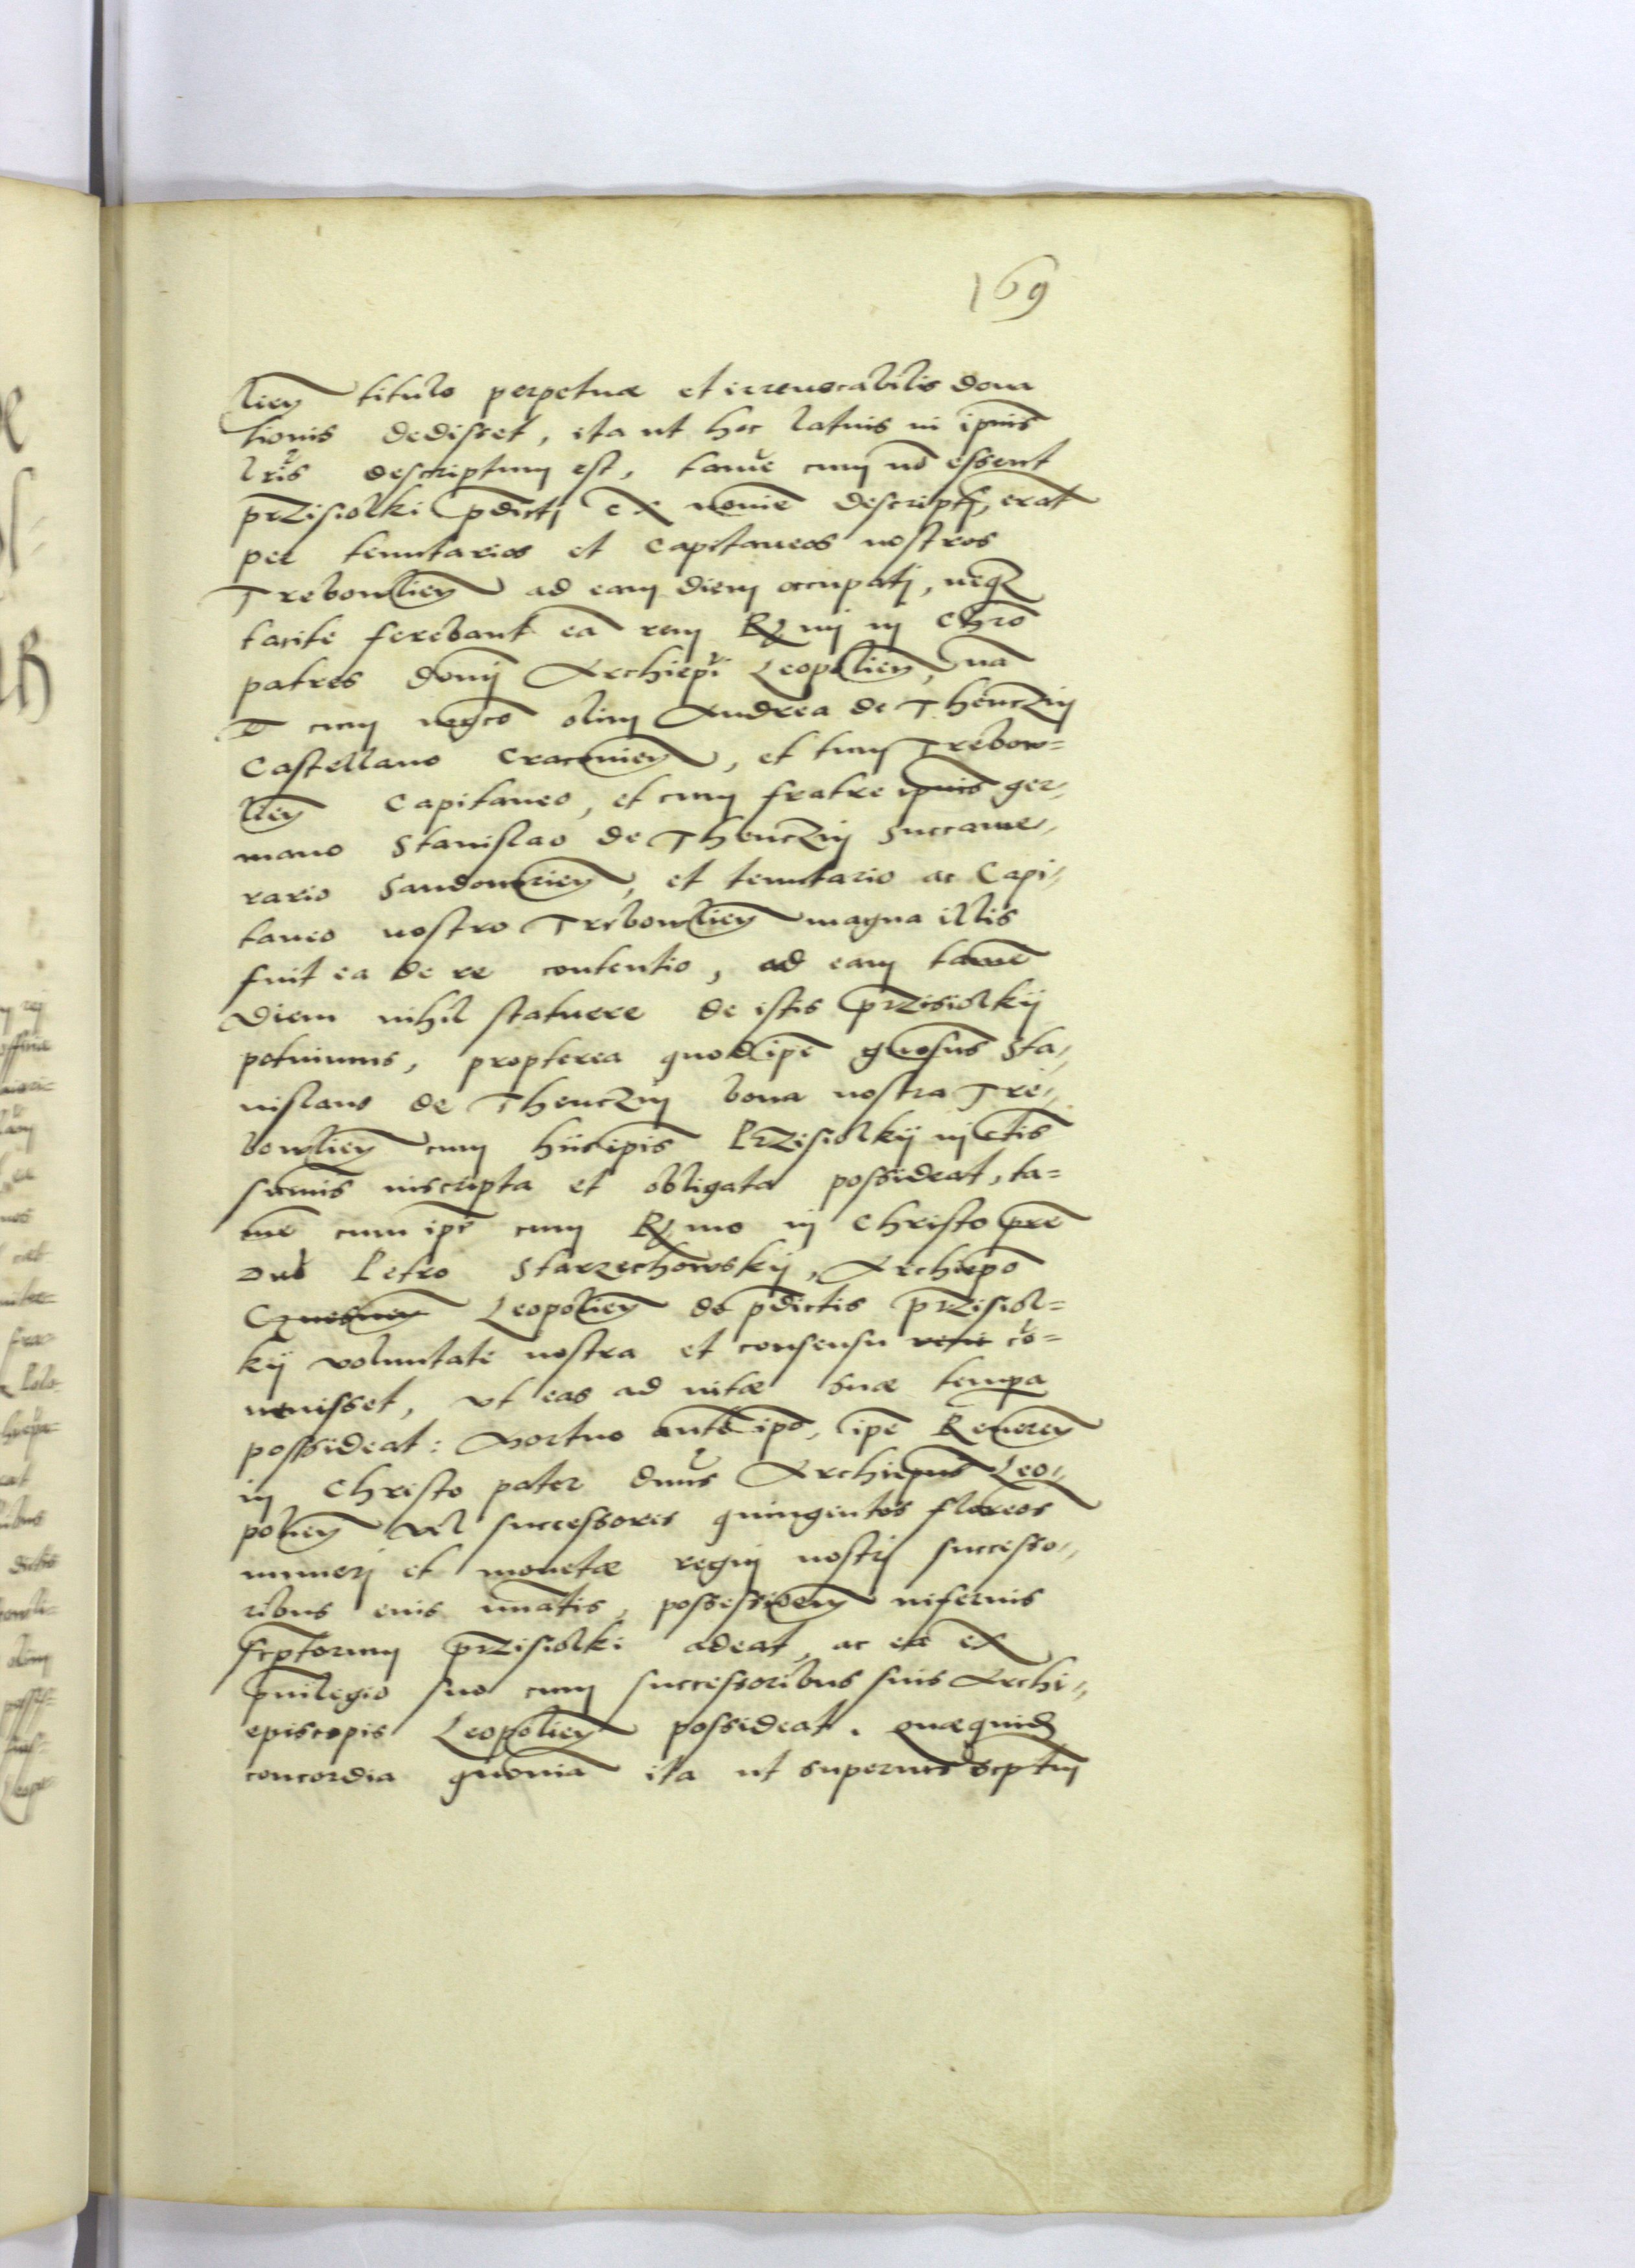 169
lien̄ titulo perpetuæ et irreuocabilis dona
tionis dedisset, ita ut hoc latius in ipsius
lr̄is descriptum est, tame cum nō essent
przisiolki p̄dicti ex nomine descripti, erat
per tenutarios et Capitaneos nostros
Trebowlien̄ ad eam diem occupati, neq3
tacite ferebant eā rem R̄mi in Chrō
patres domi Archiepī Leopolien̄, nā
Et cum mgco olim Andrea de Thenczin
Castellano Cracouien̄, et tum Trebow=
lien̄ Capitaneo, et cum fratre ipsius ger,,
mano Stanislao de Thenczin Succame,,
rario Sandomirien̄, et tenutario ac Capi,,
taneo nostro Trebowlien̄ magna illis
fuit ea de re contentio, ad eam tamē
diem nihil statuere de istis przisiolkij
potuimus, propterea quod ipē gnosus Sta,,
nislaus de Thenczin bona nostra Tre,,
bowlien̄ cum hiis ipīs Przisiolkij in ctīs
summis inscripta et obligata possideat, ta=
mē cum ipē cum R̄mo in Christo prē
Dnō Petro Starzechowskij, Archiepō
Gnesnen̄ Leopolien̄ de p̄dictis przisiol=
kij voluntate nostra et consensu veni cō=
uenisset, ut eas ad uitæ suæ tempa
possideat: Mortuo autē ipō, ipē Reueren̄
in Christo pater dnūs Archiepūs Leo,,
polien̄ vel successores quingentos floreos
numeri et monetæ regni nostri successo,,
ribus eius nūatis, possessionem inferius
scptorum przisiolki adeat, ac ea ex
priuilegio suo cum successoribus suis Archi,,
episcopis Leopolien̄ possideat. quæquid
concordia quoniā ita ut superius scptum